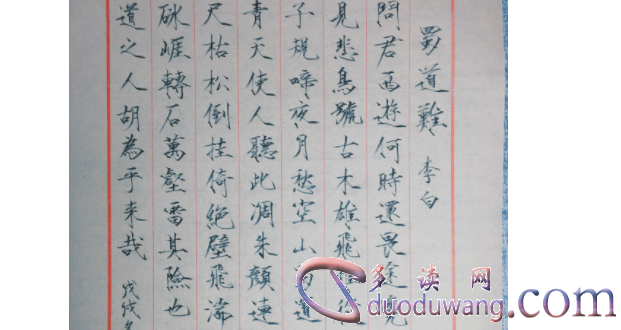 蜀道難 李白
問君西遊何時還畏途
見悲鳥號古木雄飛雌從
子規啼夜月愁空山蜀道
青天使人聽此凋朱顏連
尺枯松倒挂倚絕壁飛湍
砯崖轉石萬壑雷其險也
道之人胡為乎來哉 戊戌
多读网
duoduwang.com